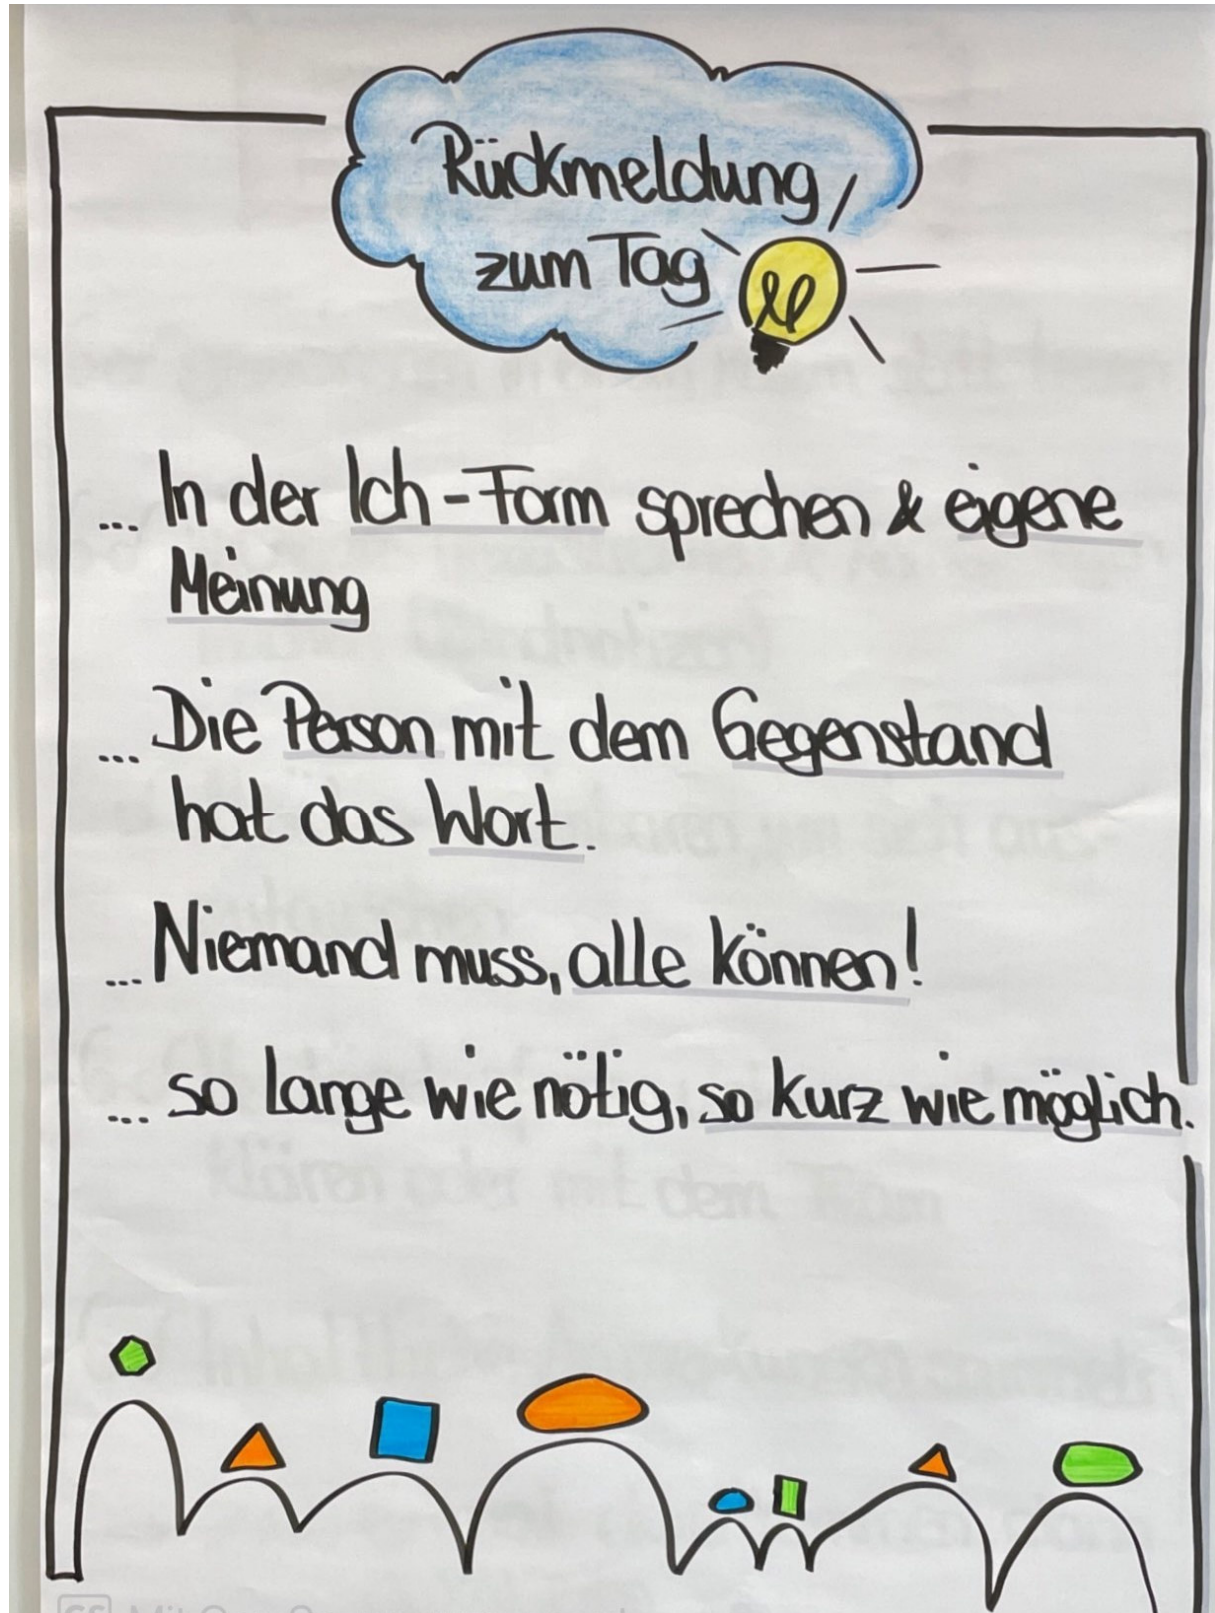 Rückmeldung
zum Tag
... In der Ich-Form sprechen & eigene
Meinung
... Die Person mit dem Gegenstand
hat das Wort.
... Niemand muss, alle können!
... so lange wie nötig, so kurz wie möglich.